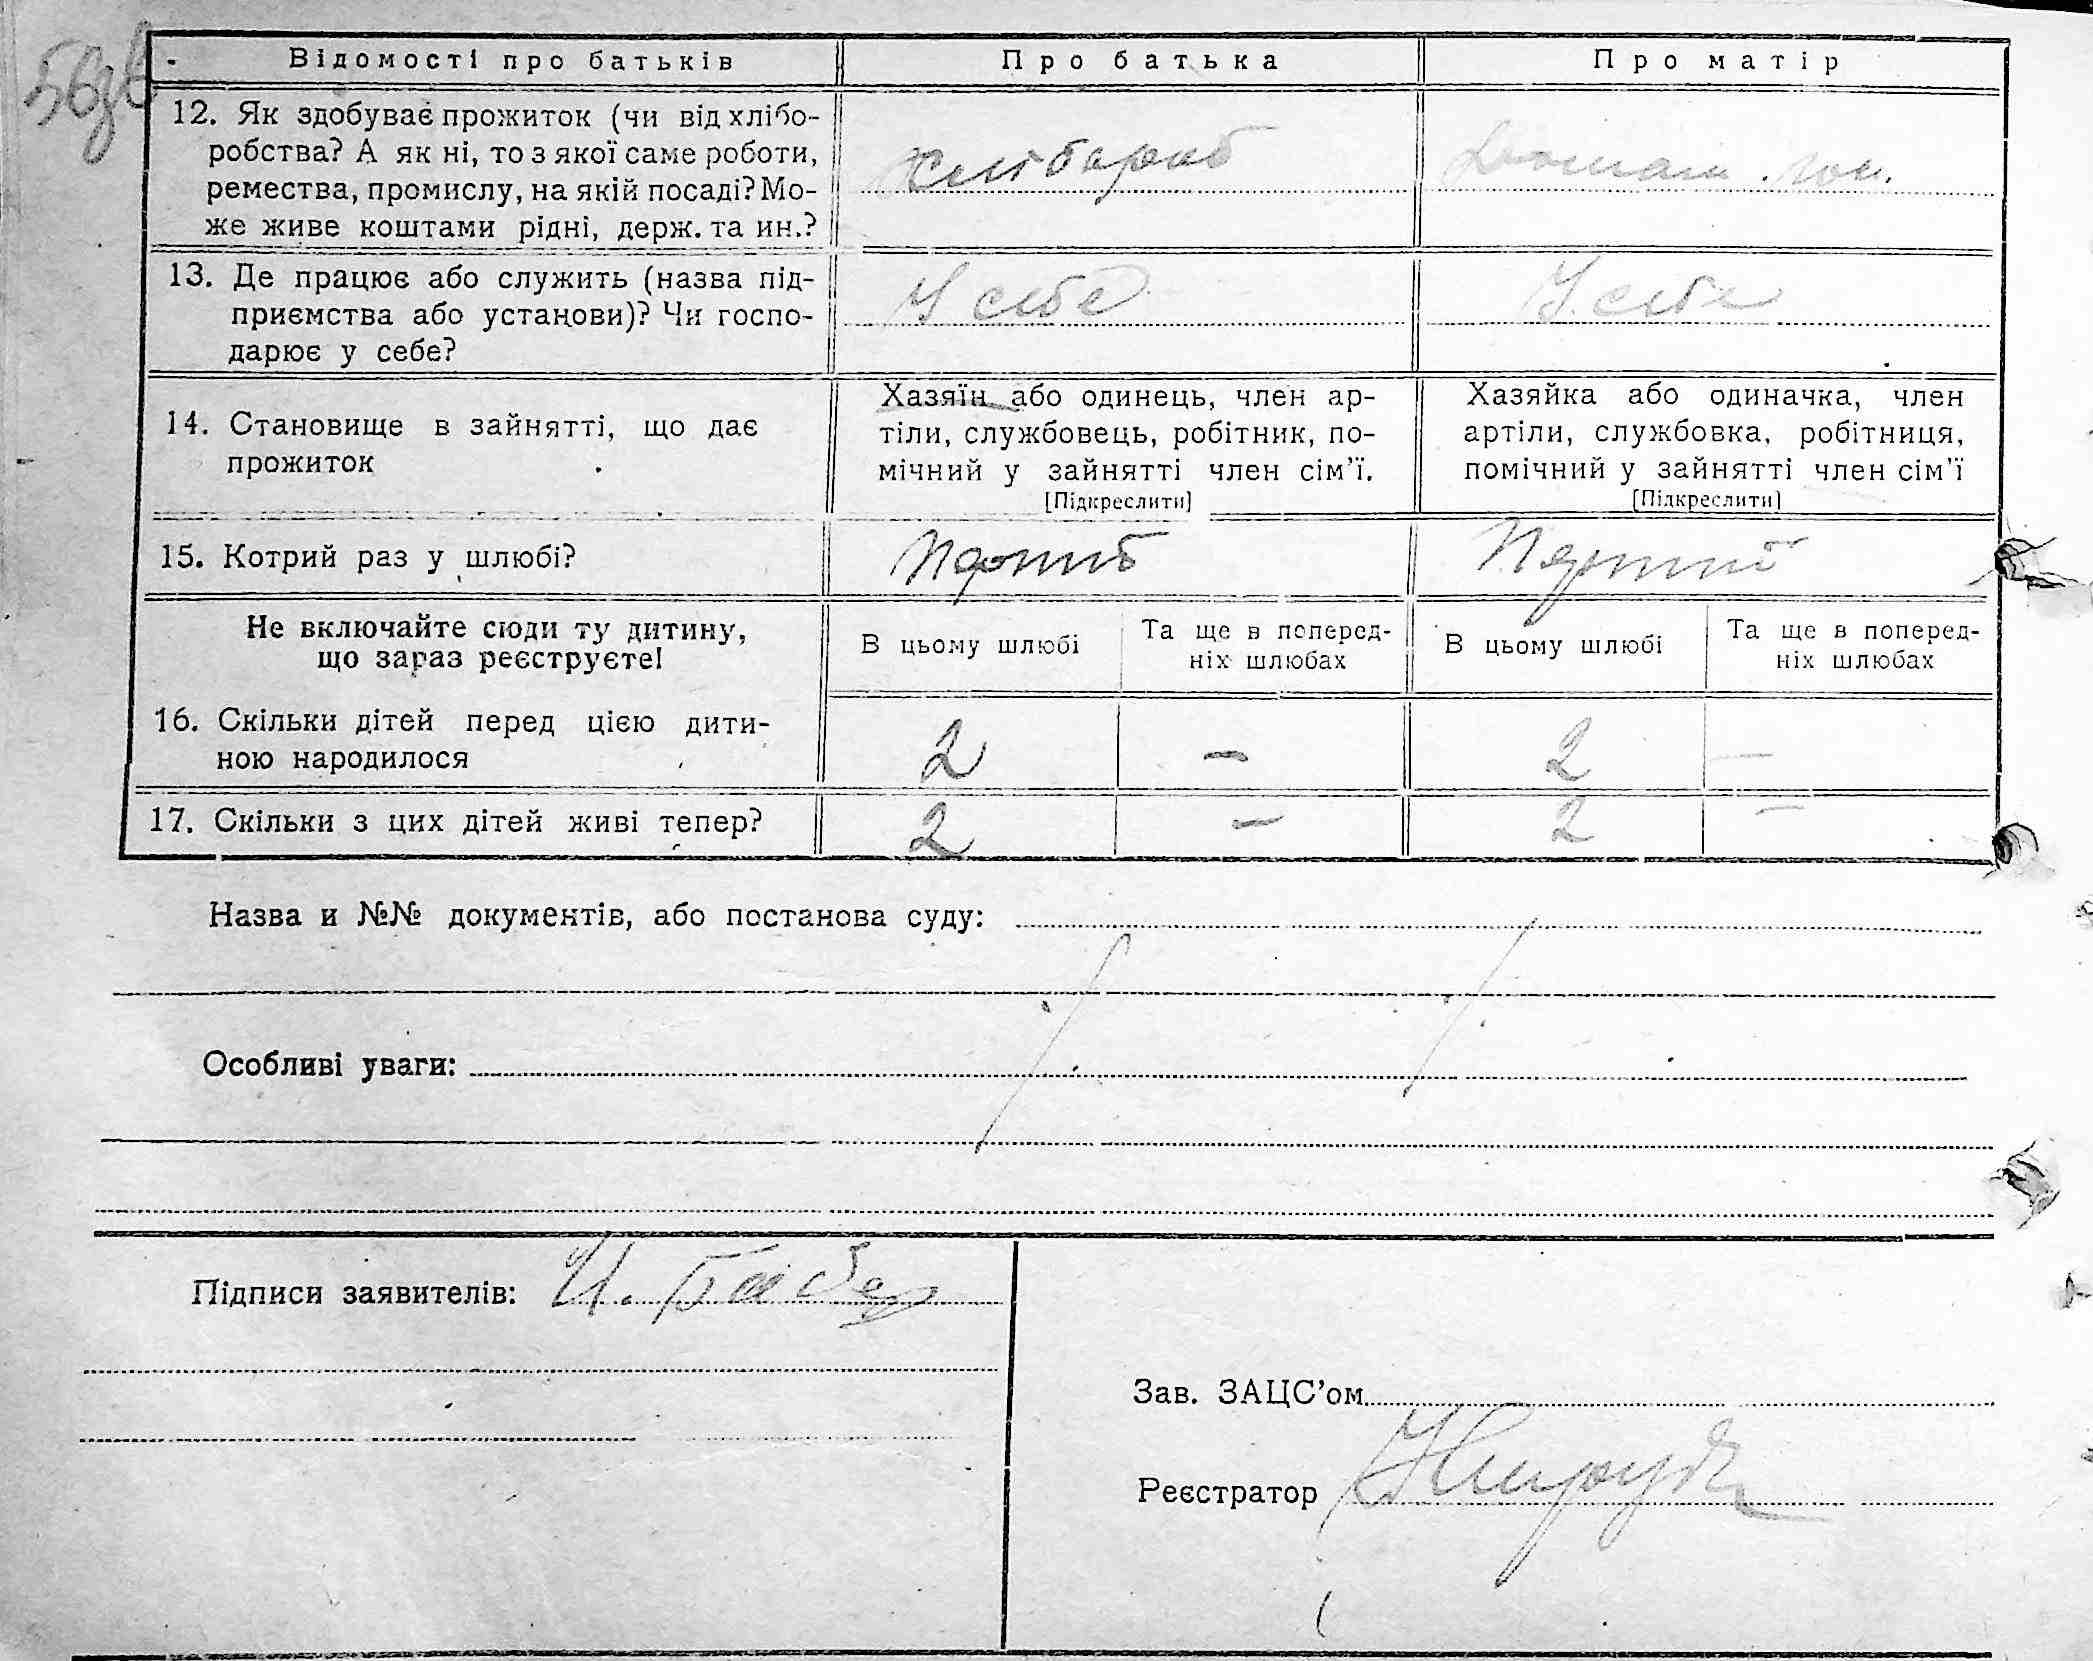 56зв
Відомості про батьків Про батька Про матір
12. Як здобуває прожиток (чи від хлібо-
робства? А як ні, то з якої саме роботи,
ремества, промислу, на якій посаді? Мо-
же живе коштами рідні, держ. та ин.?
Хлібороб
13. Де працює або служить (назва під-
приємства або установи)? Чи госпо-
дарює у себе?
У себе У себе
14. Становище в зайнятті, що дає
прожиток
Хазяїн або одинець, член ар-
тіли, службовець, робітник, по-
мічний у зайнятті член сім'ї.
[Підкреслити]
Хазяйка або одиначка, член
артіли, службовка, робітниця,
помічний у зайнятті член сім'ї
[Підкреслити]
15. Котрий раз у шлюбі?
Перший Перший
Не включайте сюди ту дитину,
що зараз реєструєте!
В цьому шлюбі
Та ще в поперед-
ніх шлюбах
В цьому шлюбі
Та ще в поперед-
ніх шлюбах
16. Скільки дітей перед цією дити-
ною народилося
2 — 2 —
17. Скільки з цих дітей живі тепер?
2 — 2 —
Назва и №№ документів, або постанова суду:
Особливі уваги:
Підписи заявителів: И.
Зав. ЗАЦС'ом
Реєстратор